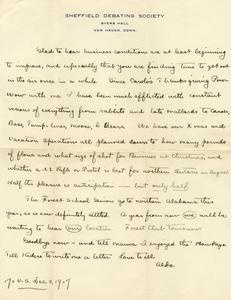 SHEFFIELD DEBATING SOCIETY
BYERS HALL
NEW HAVEN, CONN.
Glad to hear business conditions are at least beginning
to improve, and especially that you are finding time to get out
in the air once in a while. Since Carolo's Thanksgiving Pow-
Wow with me I have been much afflicted with constant
visions of everything from rabbits and late mallards to Canoes,
Bass, Jump-lines, Moose, & Bears. We have our Xmas and
Vacation operations all planned down to how many pounds
of flour and what size of shot for Bunnies at Christmas, and
whether a .22 Rifle or Pistol is best for northern in August
Half the pleasure is anticipation — but only half.
The Forest School Seniors go to northern Alabama this
year, as is now definitely settled. A year from now we will be
waiting to hear our location. Forest Club tomorrow.
Goodbye now — and tell mama I enjoyed the Hawkeye
Tell to write me a letter. Love to all
Aldo.
170 V.S. Dec 3, 1907